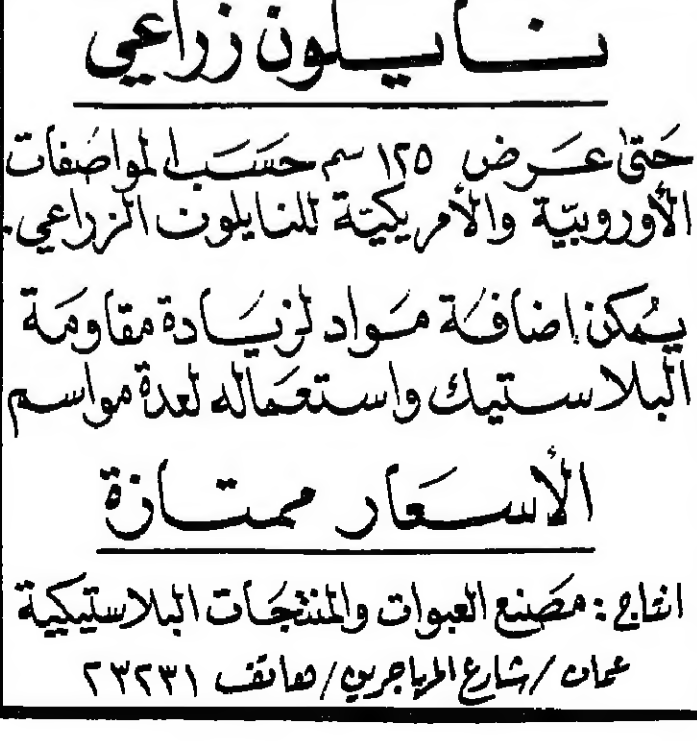 نايلون زراعي
حَتىٰ عَرض ١٢٥ سم حسَبَ المواصفات
الأوروبيّة والأمريكيّة للنايلون الزراعي.
يُمكن اضافَة مَواد لزيَادة مقاومَة
البلاستيك واستعمَاله لعدة مواسم
الأسعَار ممتازة
انتاج : مصَنع العبوات والمنتجَات البلاستيكية
عمان / شارع المهاجرين / هاتف ٢٣٢٣١